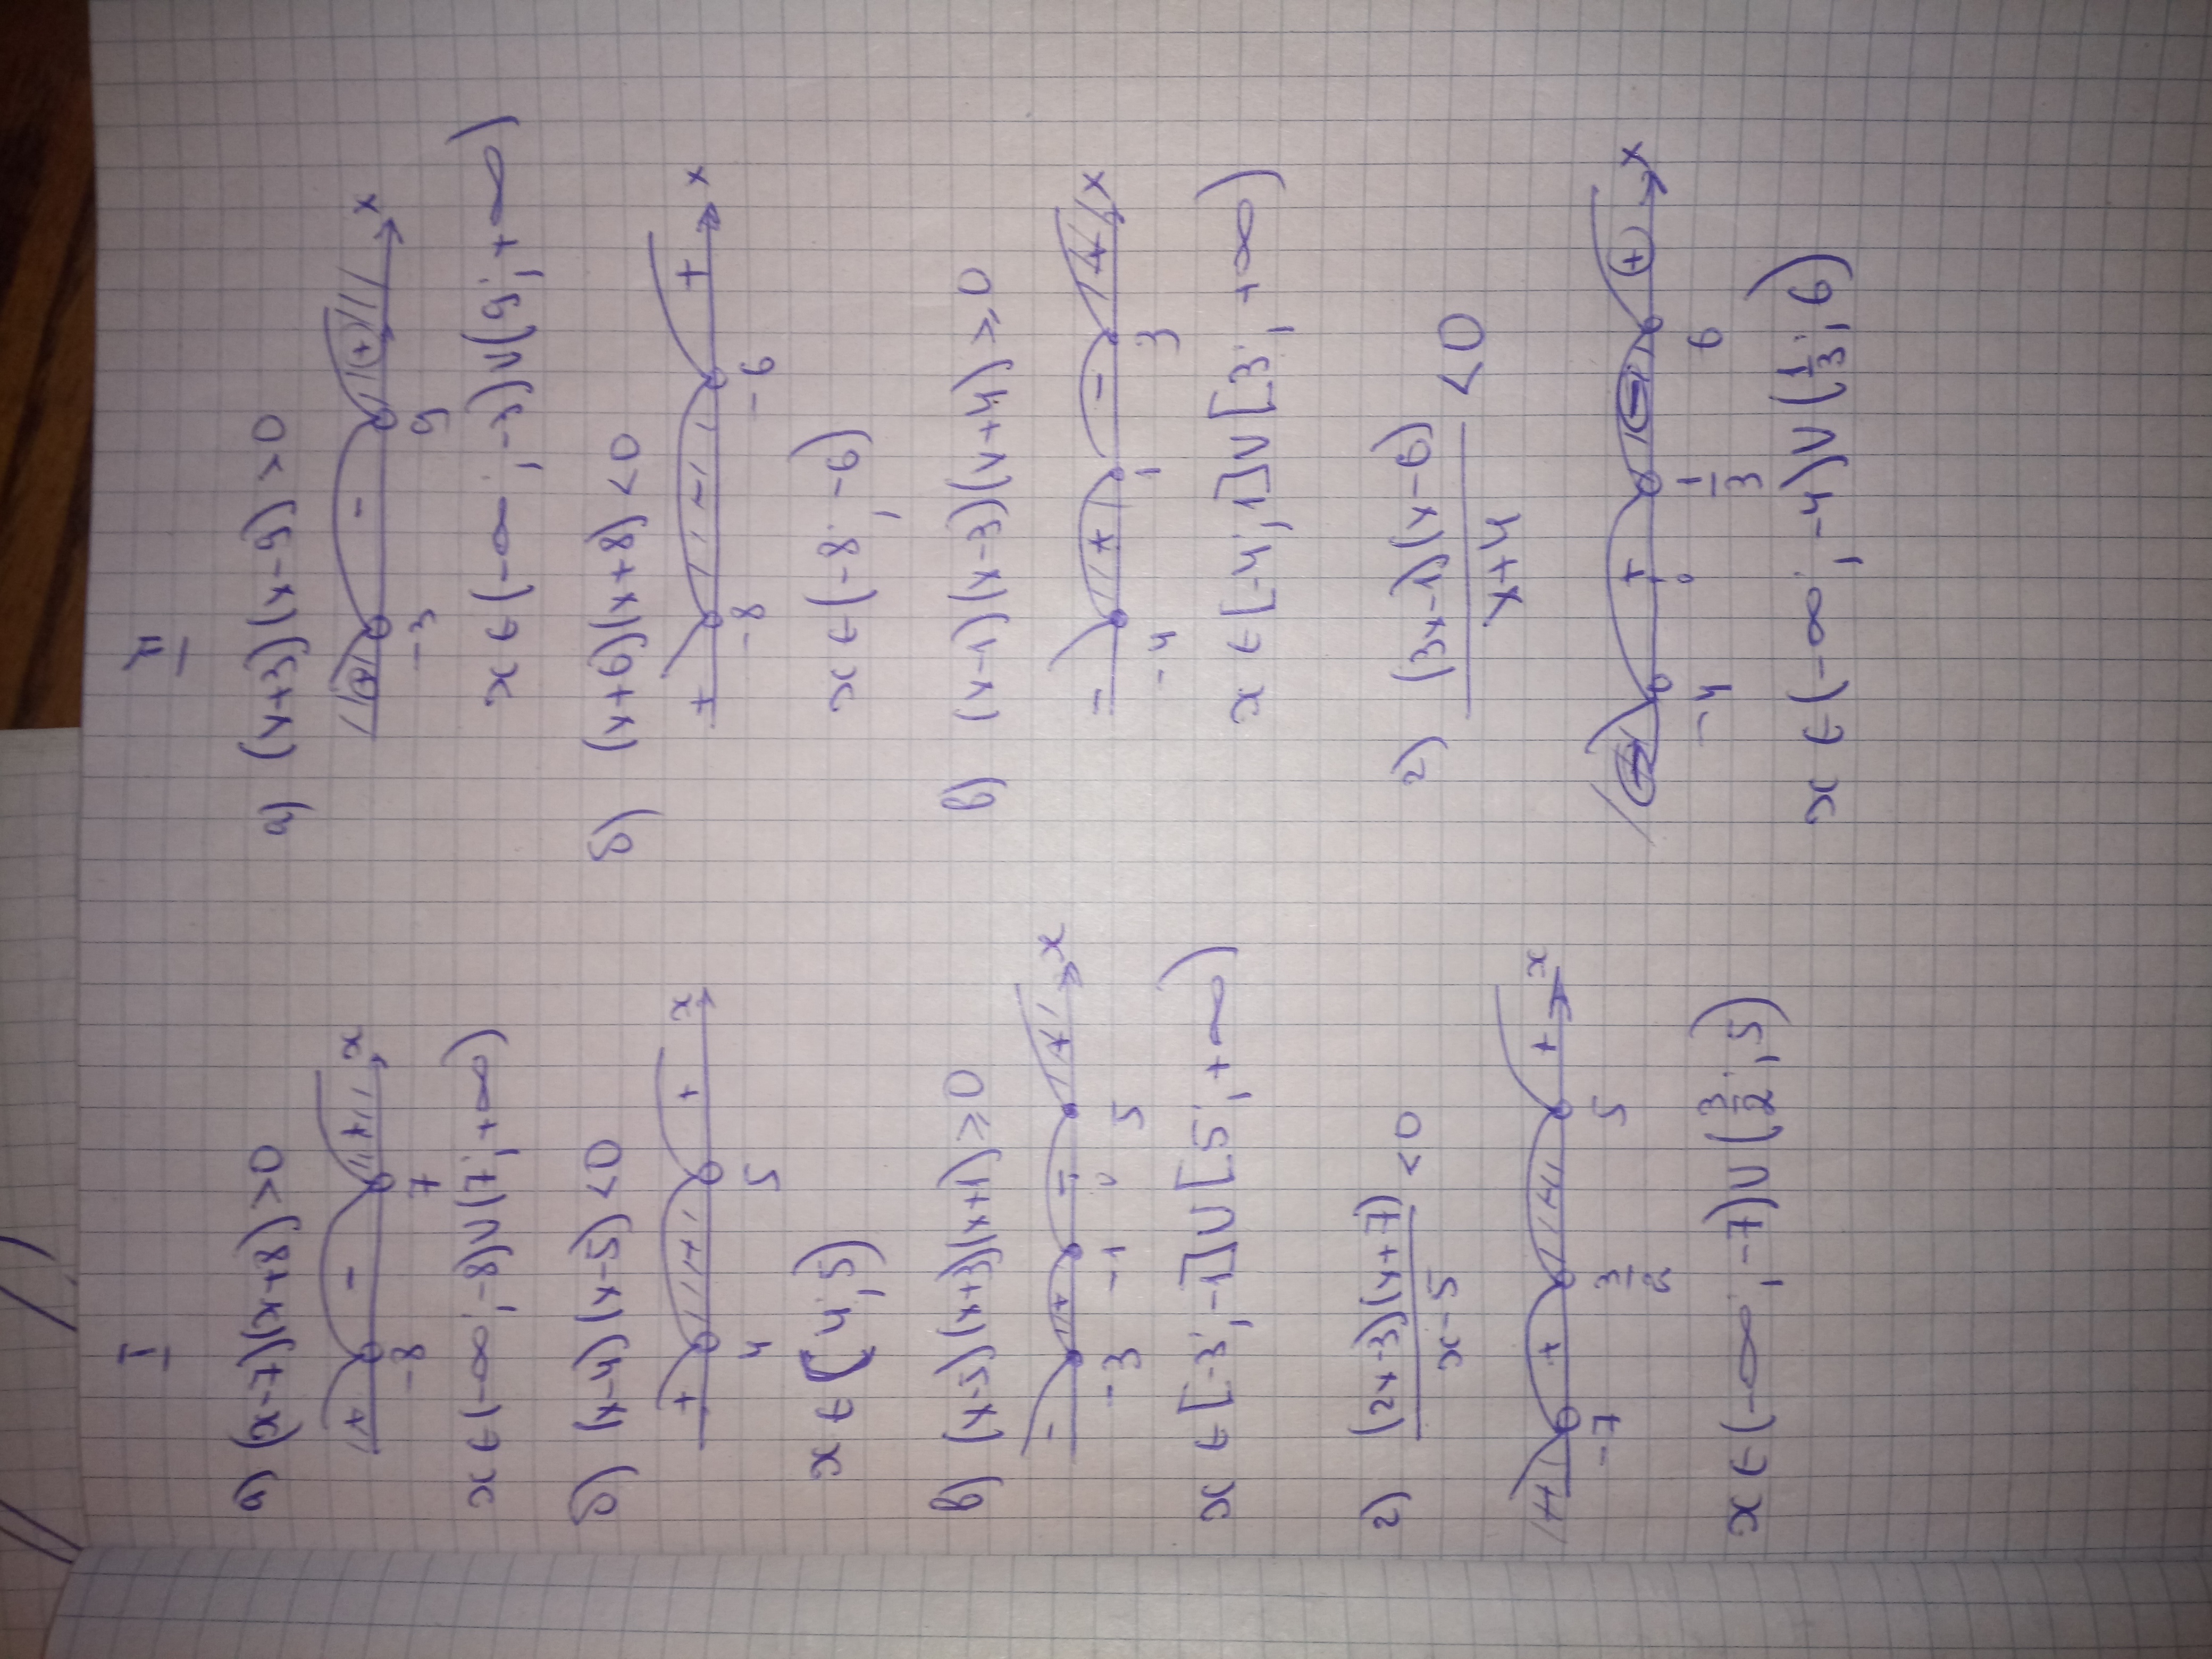 I
а) (x-7)(x+8) >0
+ - + x
-8 7
x ∈ (-∞; -8)∪(7; +∞)
б) (x-4)(x-5) <0
+ - + x
4 5
x ∈ (4; 5)
в) (x-5)(x+3)(x+1) ≥0
- + - + x
-3 -1 0 5
x ∈ [-3; -1]∪[5; +∞)
г) (2x-3)(x+7)/x-5 <0
- + - + x
-7 3/2 5
x ∈ (-∞; -7)∪(3/2; 5)
II
а) (x+3)(x-9) >0
+ - + x
-3 9
x ∈ (-∞; -3)∪(9; +∞)
б) (x+6)(x+8) <0
+ - + x
-8 -6
x ∈ (-8; -6)
в) (x-1)(x-3)(x+4) ≥0
- + - + x
-4 1 3
x ∈ [-4; 1]∪[3; +∞)
г) (3x-1)(x-6)/x+4 <0
+ - + x
-4 0 1/3 6
x ∈ (-∞; -4)∪(1/3; 6)